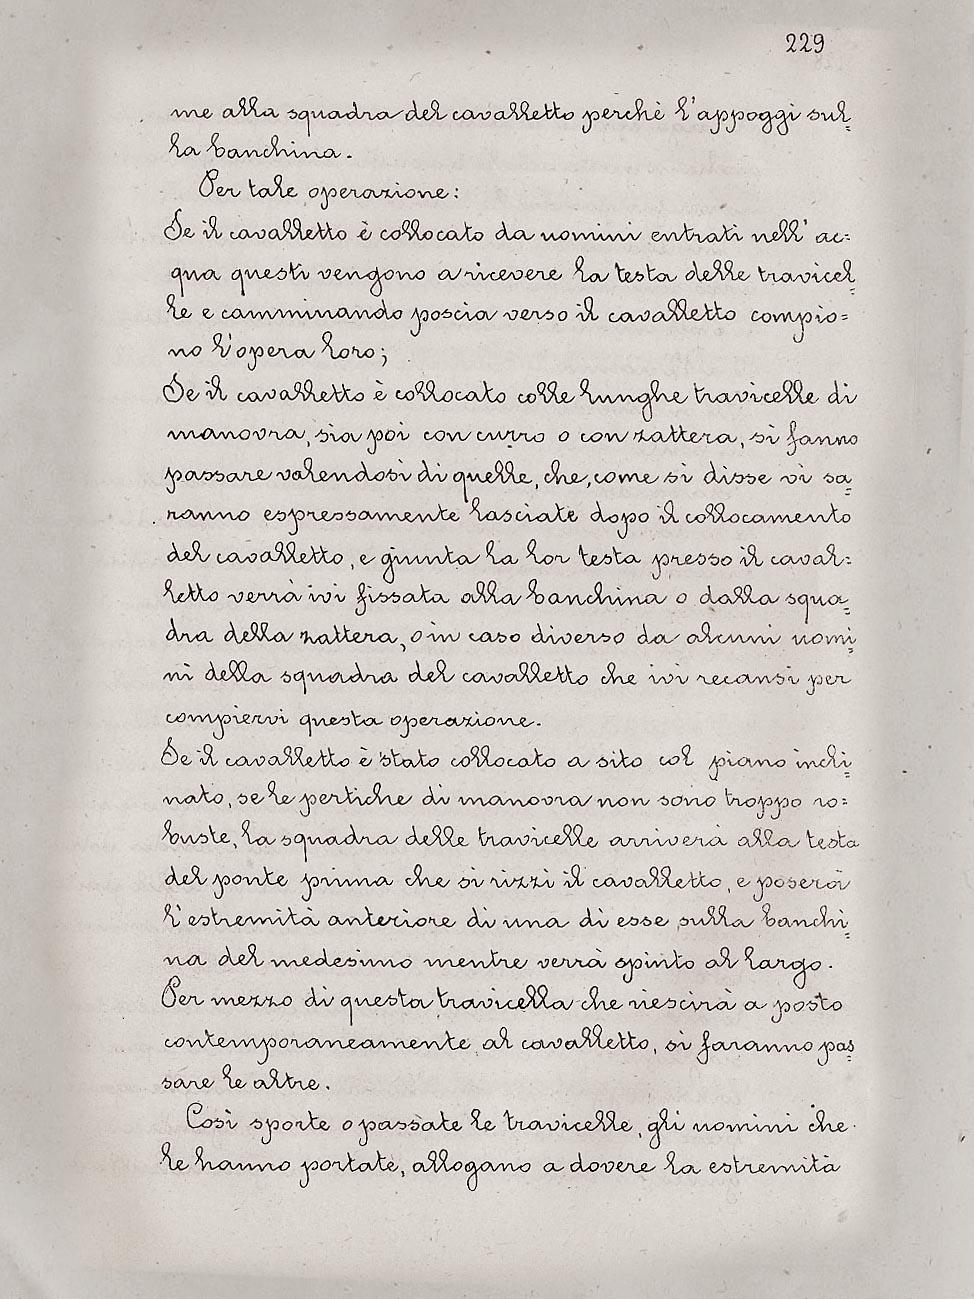 229
me alla squadra del cavalletto perchè l'appoggi sul=
la banchina.
Per tale operazione:
Se il cavalletto è collocato da uomini entrati nell' ac=
qua questi vengono a ricevere la testa delle travicel=
le e camminando poscia verso il cavalletto compio=
no l'opera loro;
Se il cavalletto è collocato colle lunghe travicelle di
manovra, sia poi con curro o con zattera, si fanno
passare valendosi di quelle, che, come si disse vi sa=
ranno espressamente lasciate dopo il collocamento
del cavalletto, e giunta la lor testa presso il caval=
letto verrà ivi fissata alla banchina o dalla squa=
dra della zattera, o in caso diverso da alcuni uomi=
ni della squadra del cavalletto che ivi recansi per
compiervi questa operazione.
Se il cavalletto è stato collocato a sito col piano incli=
nato, se le pertiche di manovra non sono troppo ro=
buste, la squadra delle travicelle arriverà alla testa
del ponte prima che si rizzi il cavalletto, e poserà
l'estremità anteriore di una di esse sulla banchi=
na del medesimo mentre verrà spinto al largo.
Per mezzo di questa travicella che riescirà a posto
contemporaneamente al cavalletto, si faranno pas=
sare le altre.
Così sporte o passate le travicelle, gli uomini che
le hanno portate, allogano a dovere la estremità